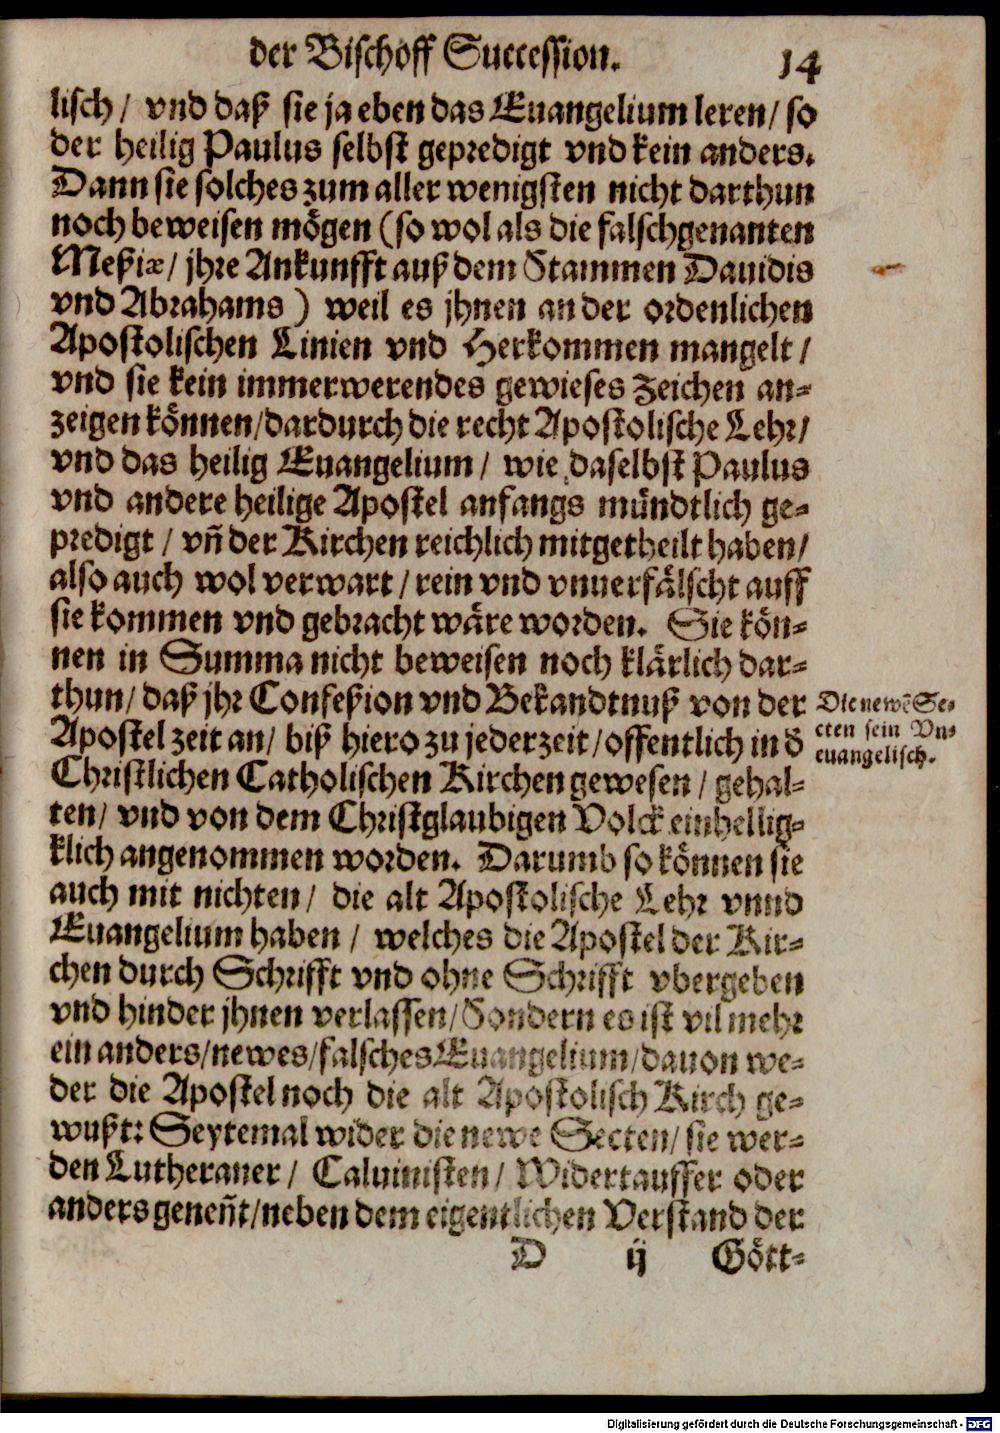 der Bischoff Succession. 14
lisch/ vnd daß sie ja eben das Euangelium leren/ so
der heilig Paulus selbst geprediget vnd kein anders.
Dann sie solches zum aller wenigsten nicht darthun
noch beweisen mögen (so wol als die falschgenanten
Meßiæ/ jhre Ankunfft auß dem Stammen Dauidis
vnd Abrahams) weil es jhnen an der ordenlichen
Apostolischen Linien vnd Herkommen mangelt/
vnd sie kein immerwerendes gewieses Zeichen an-
zeigen können/dardurch die recht Apostolische Lehr/
vnd das heilig Euangelium/ wie daselbst Paulus
vnd andere heilige Apostel anfangs mündtlich ge-
predigt/ vñ der Kirchen reichlich mitgetheilt haben/
also auch wol verwart/rein vnd vnuerfälscht auff
sie kommen vnd gebracht wäre worden. Sie kön-
nen in Summa nicht beweisen noch klärlich dar-
thun/ daß jhr Confeßion vnd Bekandtnuß von der
Apostel zeit an/ biß hiero zu jederzeit/offentlich in d̕
Christlichen Catholischen Kirchen gewesen/ gehal-
ten/ vnd von dem Christglaubigen Volck einhellig-
klich angenommen worden. Darumb so können sie
auch mit nichten/ die alt Apostolische Lehr vnnd
Euangelium haben/ welches die Apostel der Kir-
chen durch Schrifft vnd ohne Schrifft vbergeben
vnd hinder jhnen verlassen/Sondern es ist vil mehr
ein anders/newes/falsches Euangelium/dauon we-
der die Apostel noch die alt Apostolisch Kirch ge-
wußt: Seytemal wider die newe Secten/ sie wer-
den Lutheraner/ Caluinisten/ Widertauffer oder
anders geneñt/neben dem eigentlichen Verstand der
D ij Gött-
Die newẽ Se-
cten sein Vn-
euangelisch.
Digitalisierung gefördert durch die Deutsche Forschungsgemeinschaft - DFG